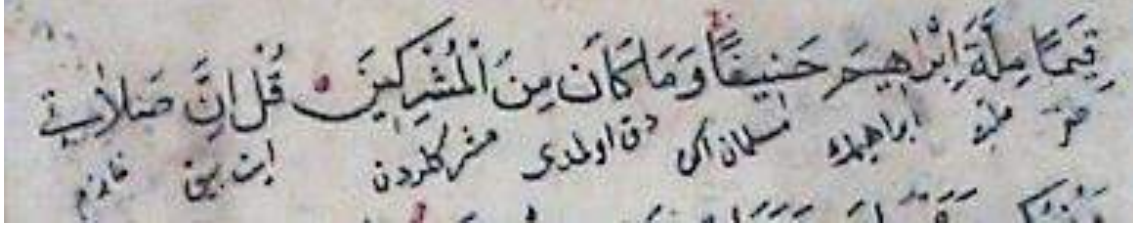 قِيَمًا مِلَّةَ اِبْرٰهِيمَ حَنِيفًا وَمَا كَانَ مِنَ الْمُشْرِكِينَ قُلْ اِنَّ صَلَاتِي
ابراهيمك مسلمان اولمدى مشركلردن ايت نمازم